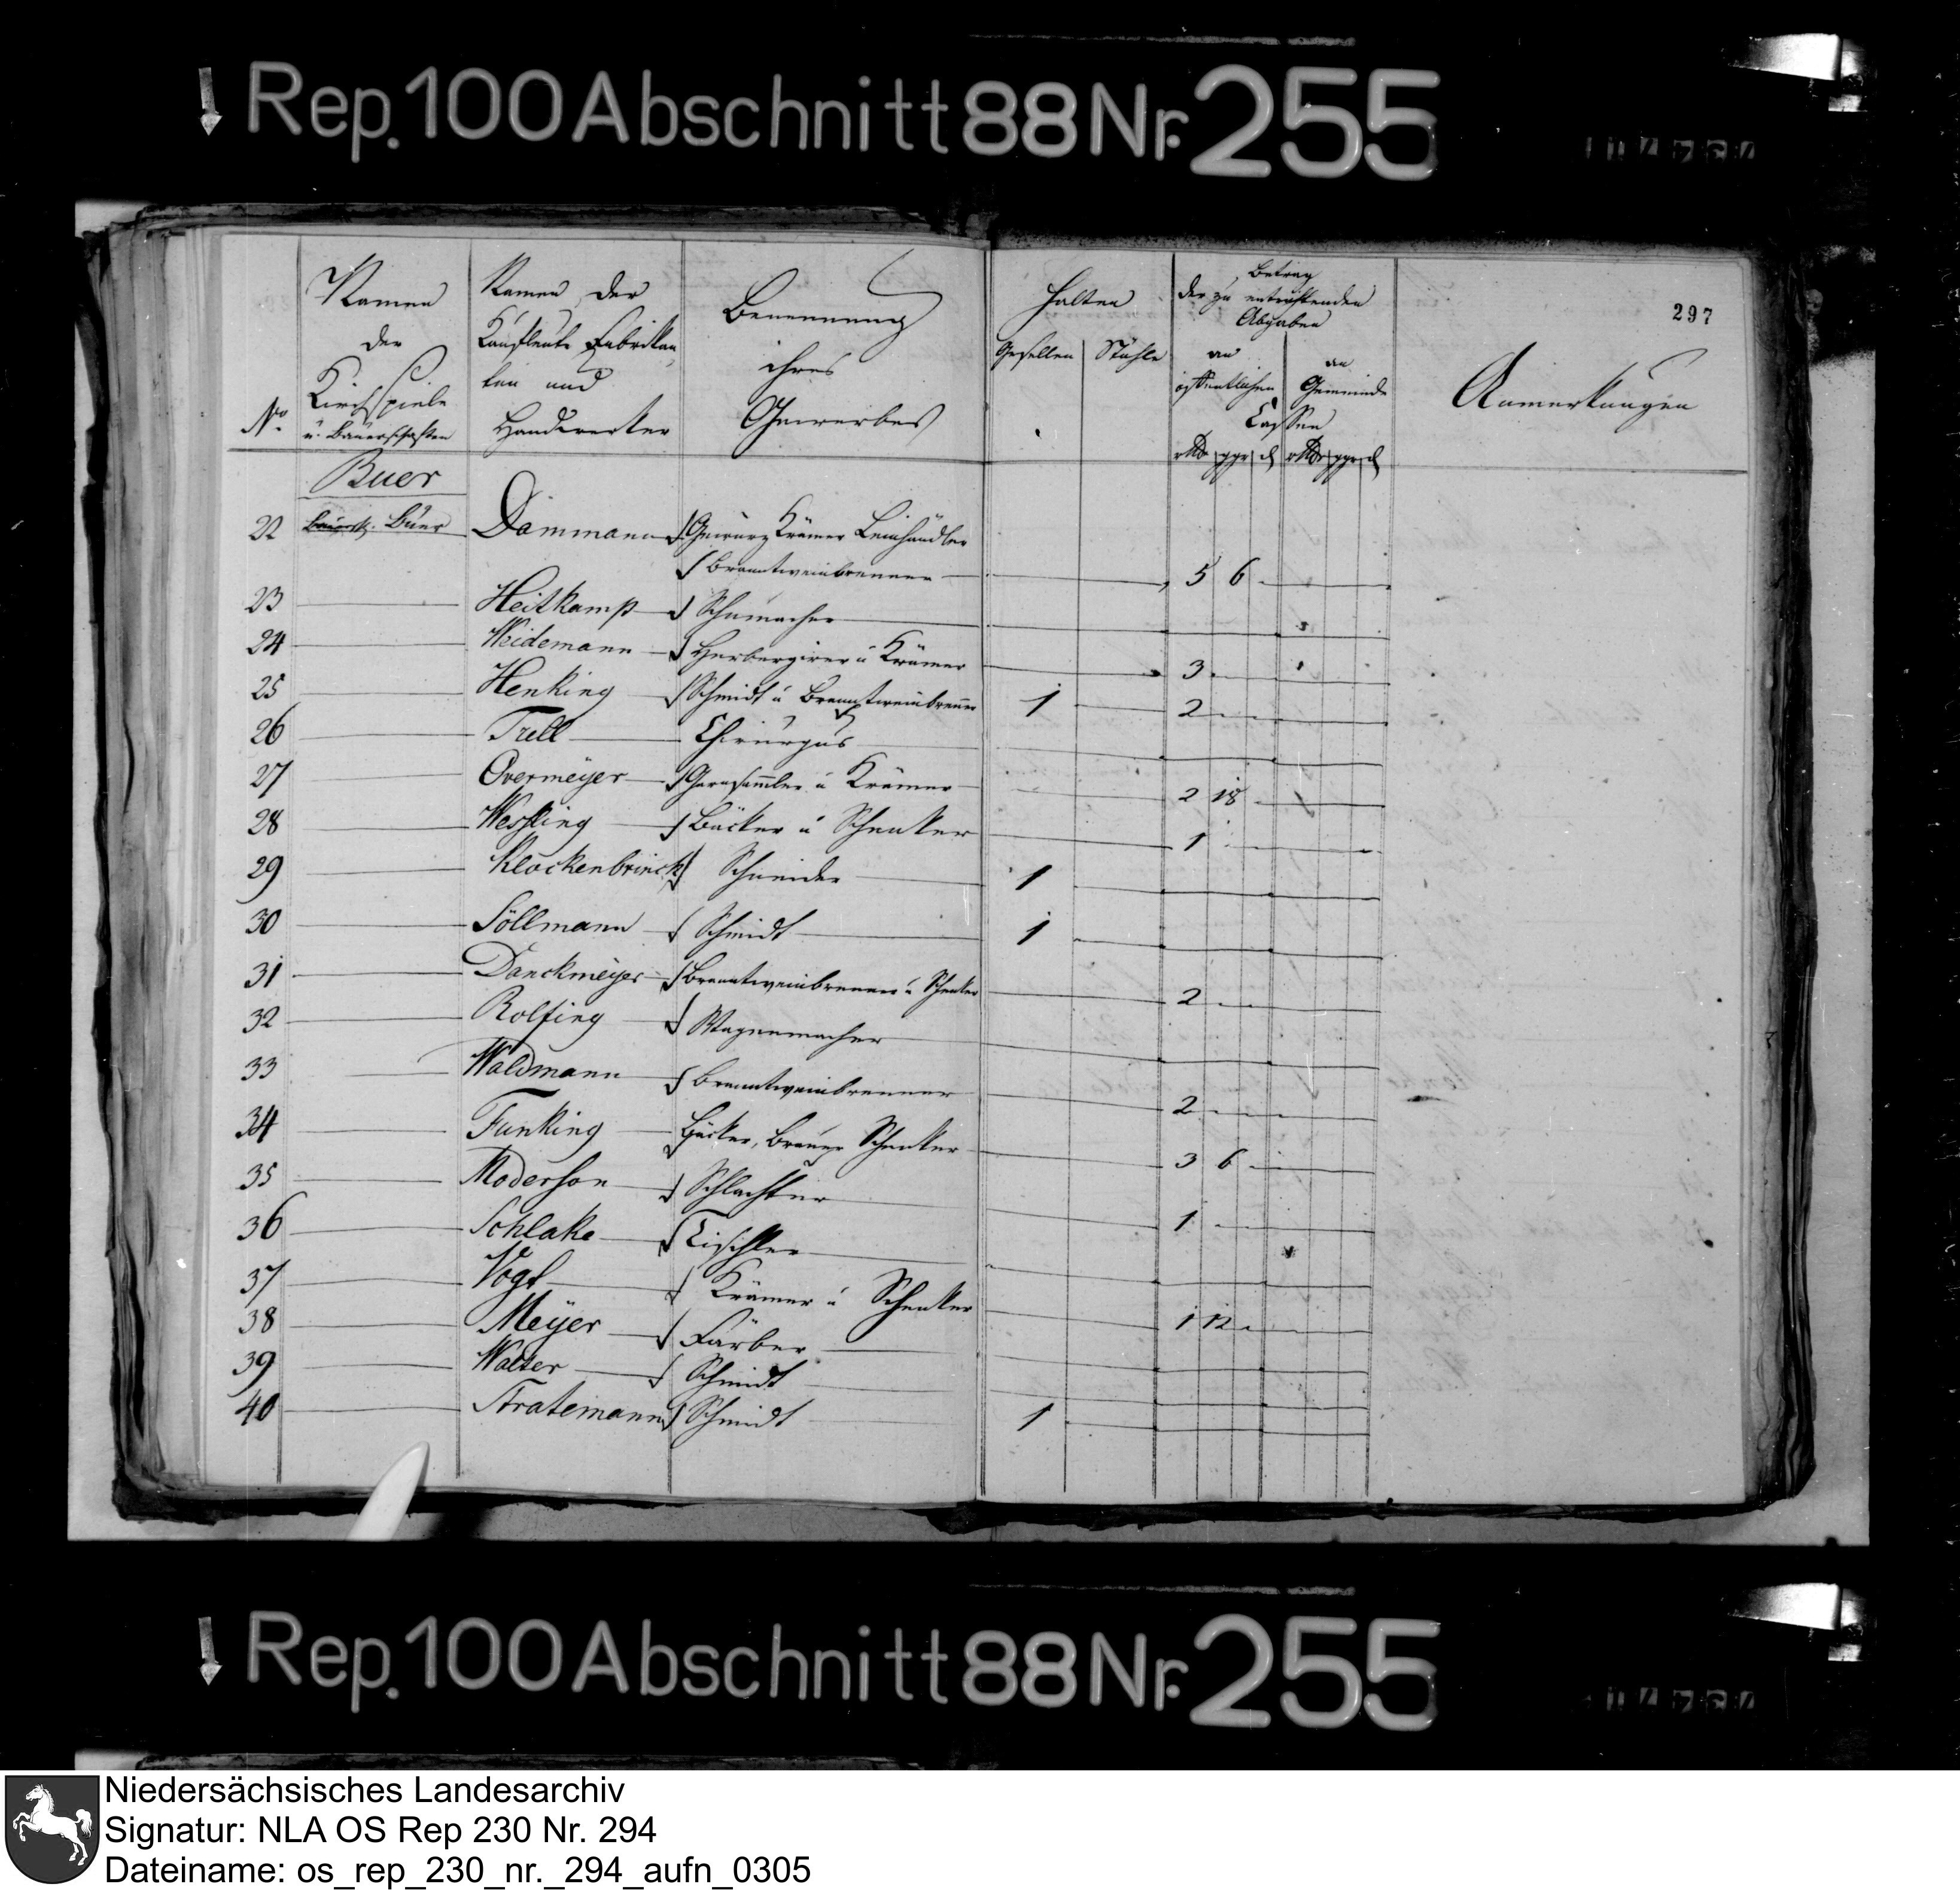 Rep. 100 Abschnitt 88 Nr. 255
297
No.
Namen der Kirchspiele u. Bauerschaften
Namen der Kaufleute Fabrikanten und Handwerker
Benennung ihres Gewerbes
Halten
Gesellen Stühle
Betrag der zu entrichtenden Abgaben
an öffentlichen an Gemeinde
Cassen
rthr ggr d rthr ggr d
Anmerkungen
Buer
22 Bauersch. Buer Dammann Gewürz Krämer Leinhändler
Brantweinbrenner 5 6
23 Heitkamp Schumacher
24 Weidemann Herbergirer u Krämer 3
25 Henking Schmidt u Brantweinbrenner 1 2
26 Trell Chirurgus
27 Overmeyer Garnsammler u Krämer 2 18
28 Wessling Bäcker u Schenker 1
29 Klockenbrinck Schneider 1
30 Söllmann Schmidt 1
31 Danckmeyer Brantweinbrenner u Schenker 2
32 Rolfing Wagenmacher
33 Waldmann Brantweinbrenner 2
34 Funking Bäcker, Brauer Schenker 3 6
35 Moderson Schlachter 1
36 Schlake Tischler
37 Vogt Krämer u Schenker 1 12
38 Meyer Färber
39 Walter Schmidt
40 Stratemann Schmidt 1
Rep. 100 Abschnitt 88 Nr. 255
Niedersächsisches Landesarchiv
Signatur: NLA OS Rep 230 Nr. 294
Dateiname: os_rep_230_nr._294_aufn_0305